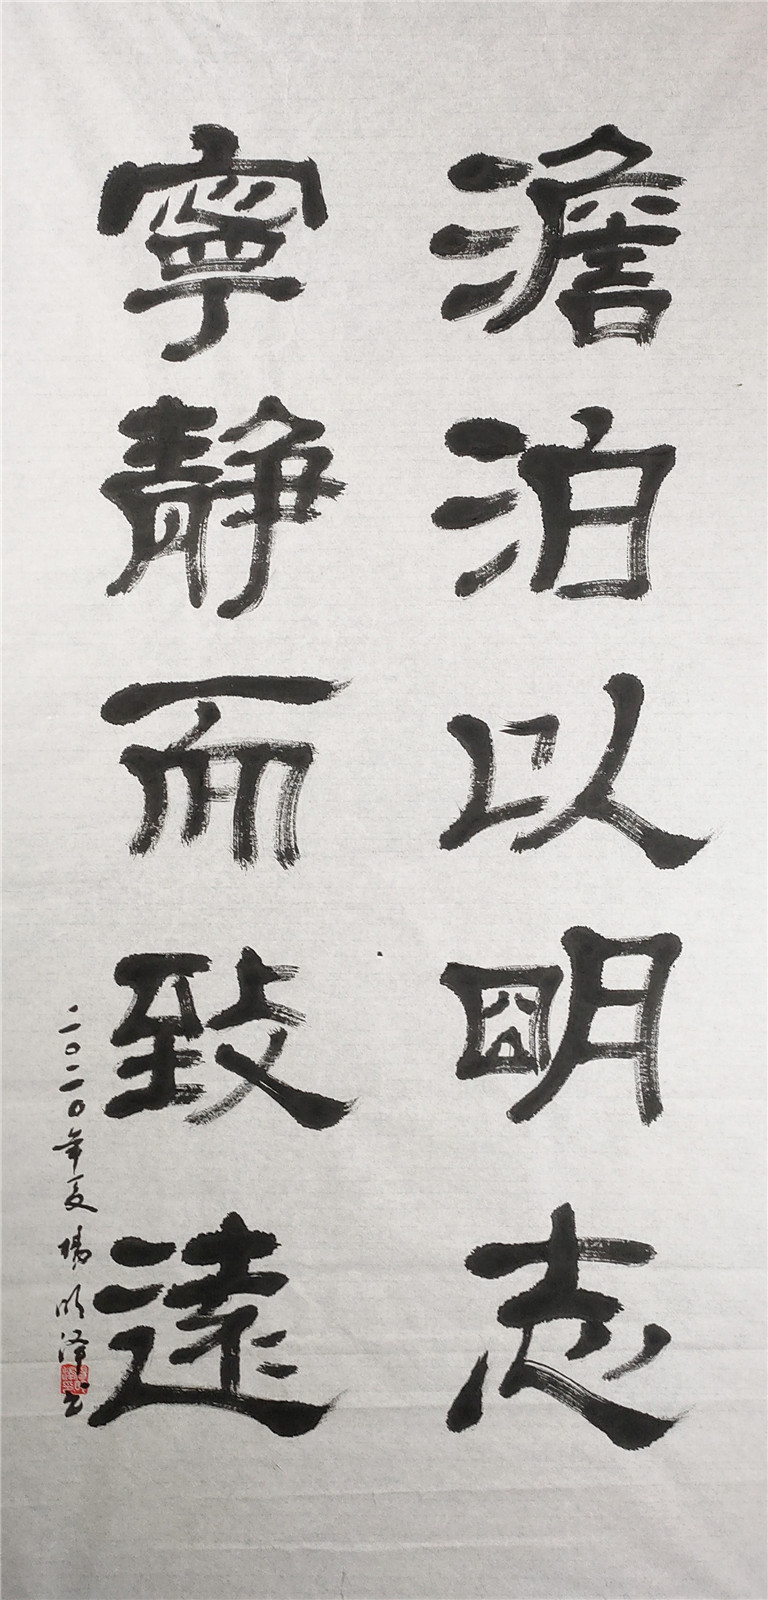 澹泊以明志
寧靜而致遠
二〇二〇年夏楊明澤书